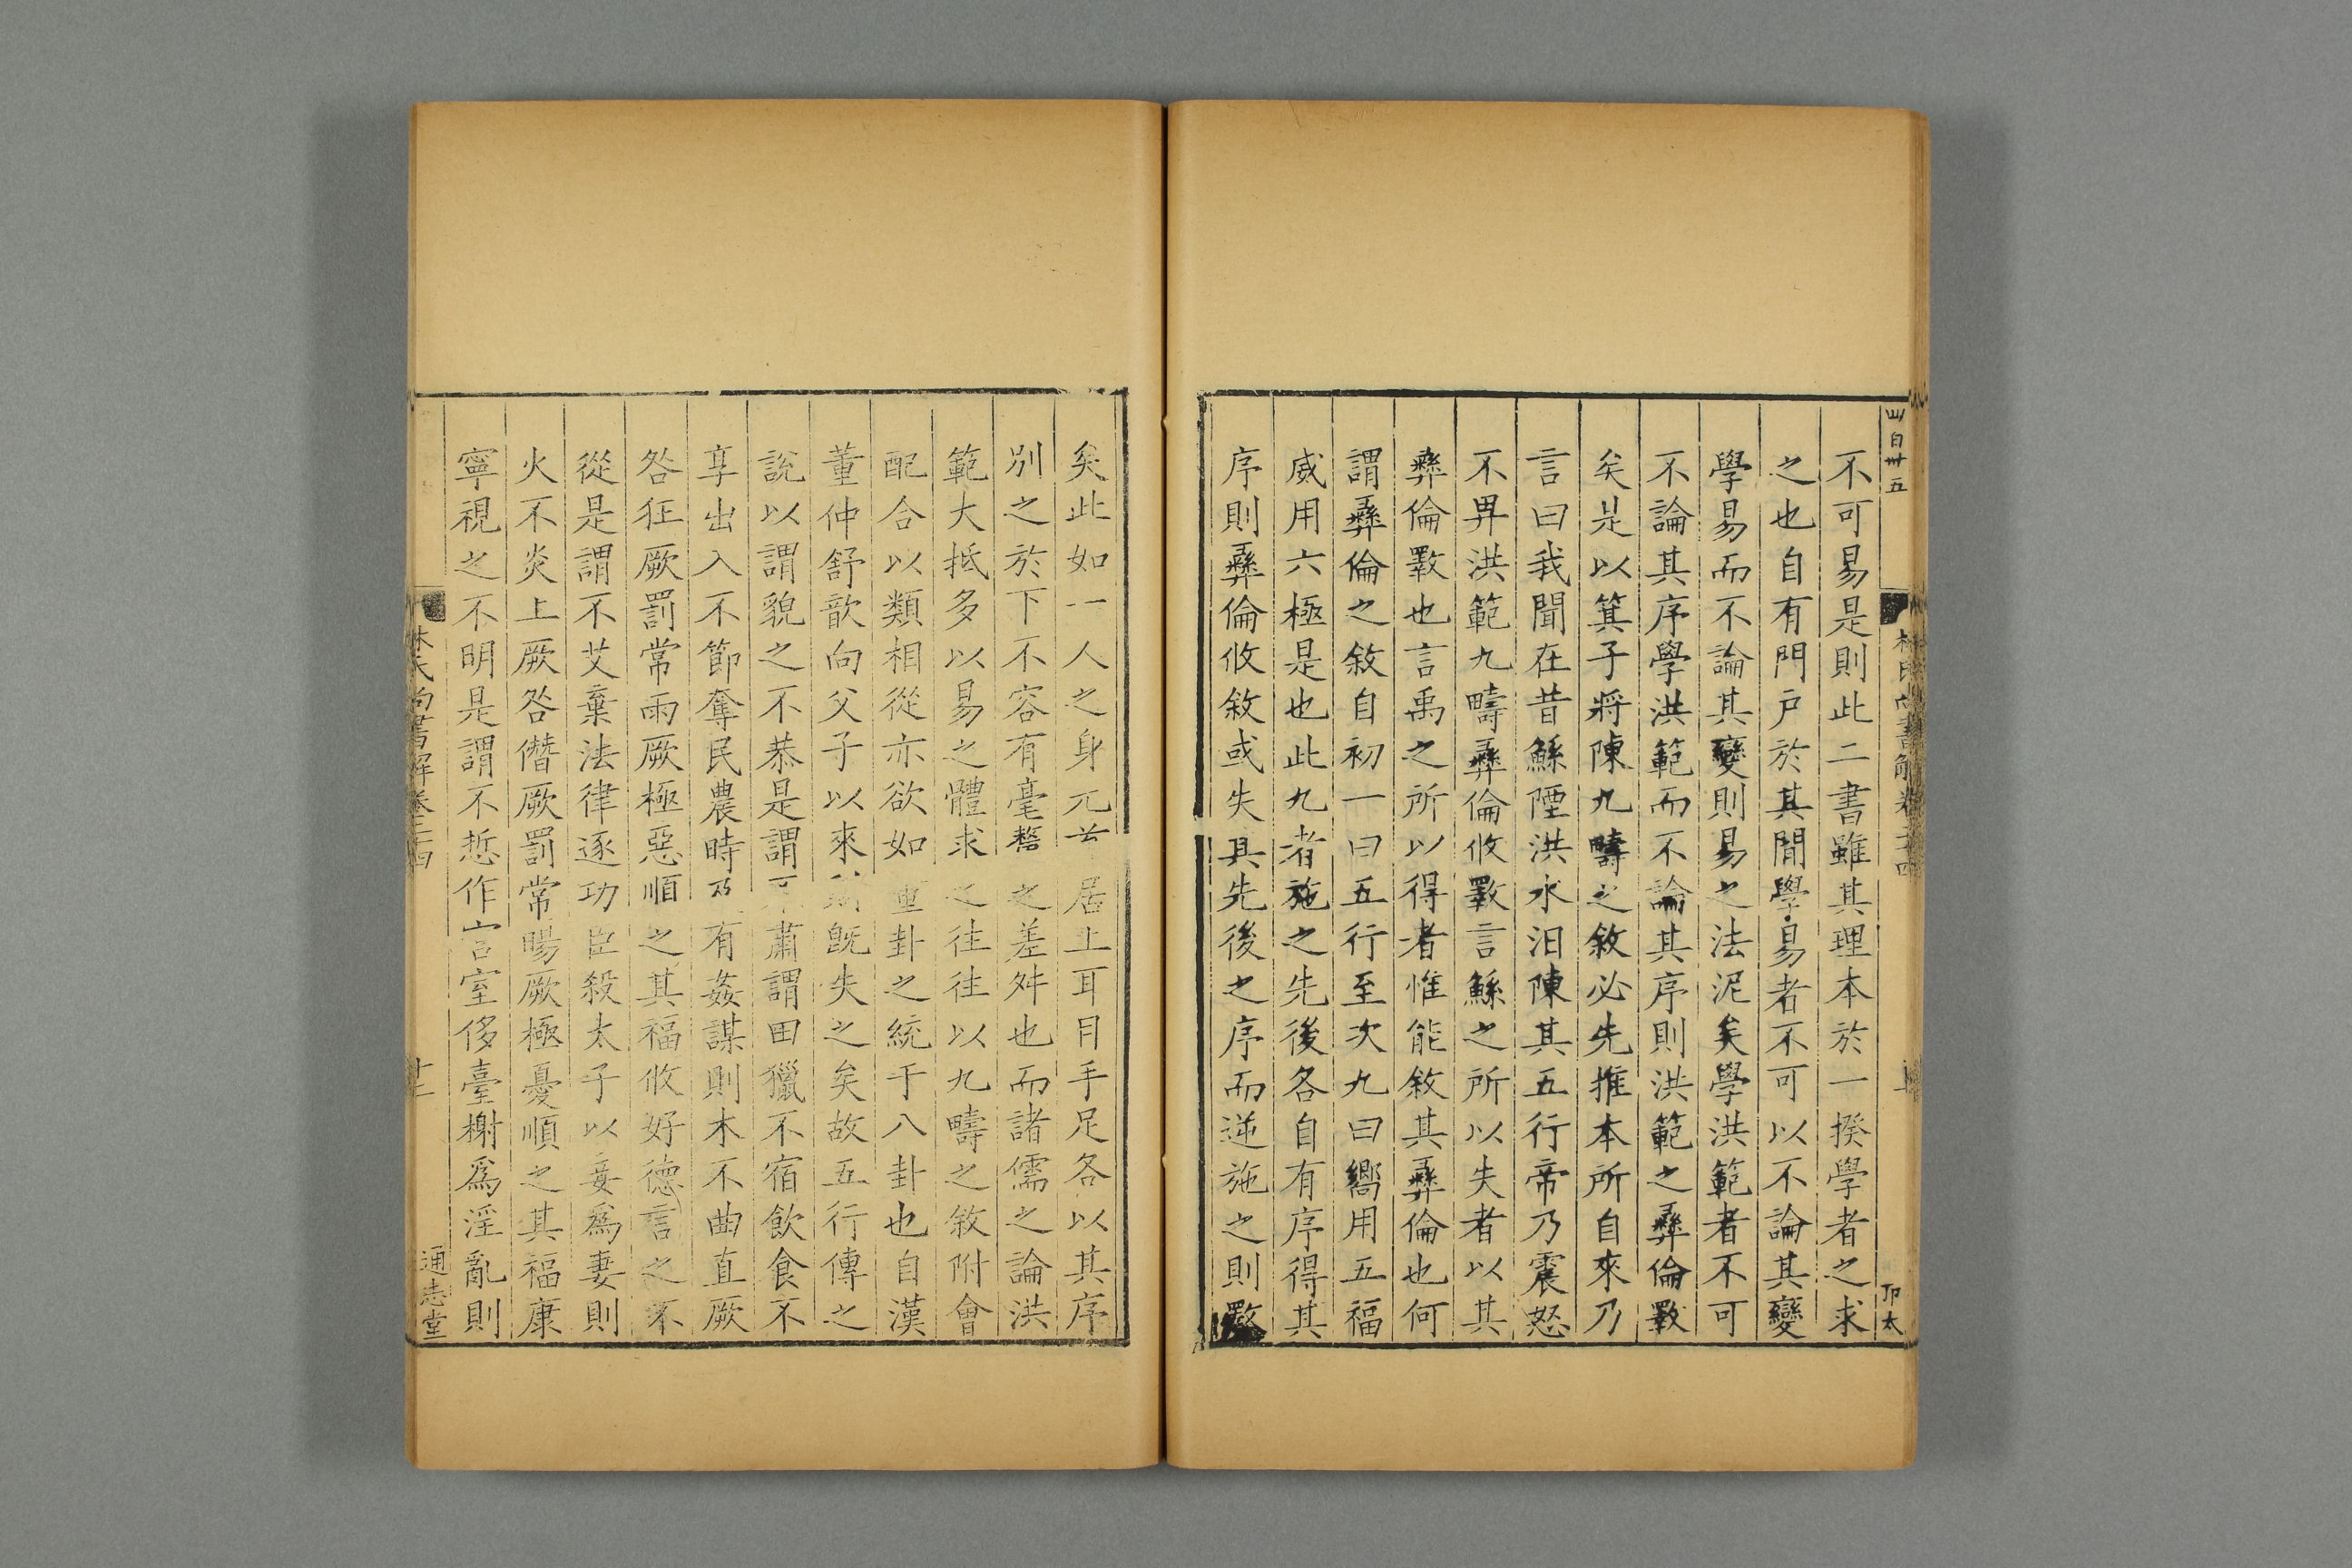 不可易是則此二書雖其理本於一揆學者之求
之也自有門戶於其間學易者不可以不論其變
學易而不論其變則易之法泥矣學洪範者不可
不論其序學洪範而不論其序則洪範之彝倫斁
矣是以箕子將陳九疇之敘必先推本所自來乃
言曰我聞在昔鯀陻洪水汩陳其五行帝乃震怒
不畀洪範九疇彝倫攸斁言鯀之所以失者以其
彝倫斁也言禹之所以得者惟能敘其彝倫也何
謂彝倫之敘自初一曰五行至次九曰嚮用五福
威用六極是也此九者施之先後各自有序得其
序則彝倫攸敘或失其先後之序而逆施之則斁
矣此如一人之身元首居上耳目手足各以其序
別之於下不容有毫釐之差舛也而諸儒之論洪
範大抵多以易之體求之往往以九疇之敘附會
配合以類相從亦欲如重卦之統于八卦也自漢
董仲舒歆向父子以來既失之矣故五行傳之
說以謂貌之不恭是謂不肅謂田獵不宿飲食不
享出入不節奪民農時乃有姦謀則木不曲直厥
咎狂厥罰常雨厥極惡順之其福攸好德言之不
從是謂不艾棄法律逐功臣殺太子以妾爲妻則
火不炎上厥咎僭厥罰常暘厥極憂順之其福康
寧視之不明是謂不悊作宮室侈臺榭爲淫亂則
林氏尚書解卷二十四
十二
通志堂